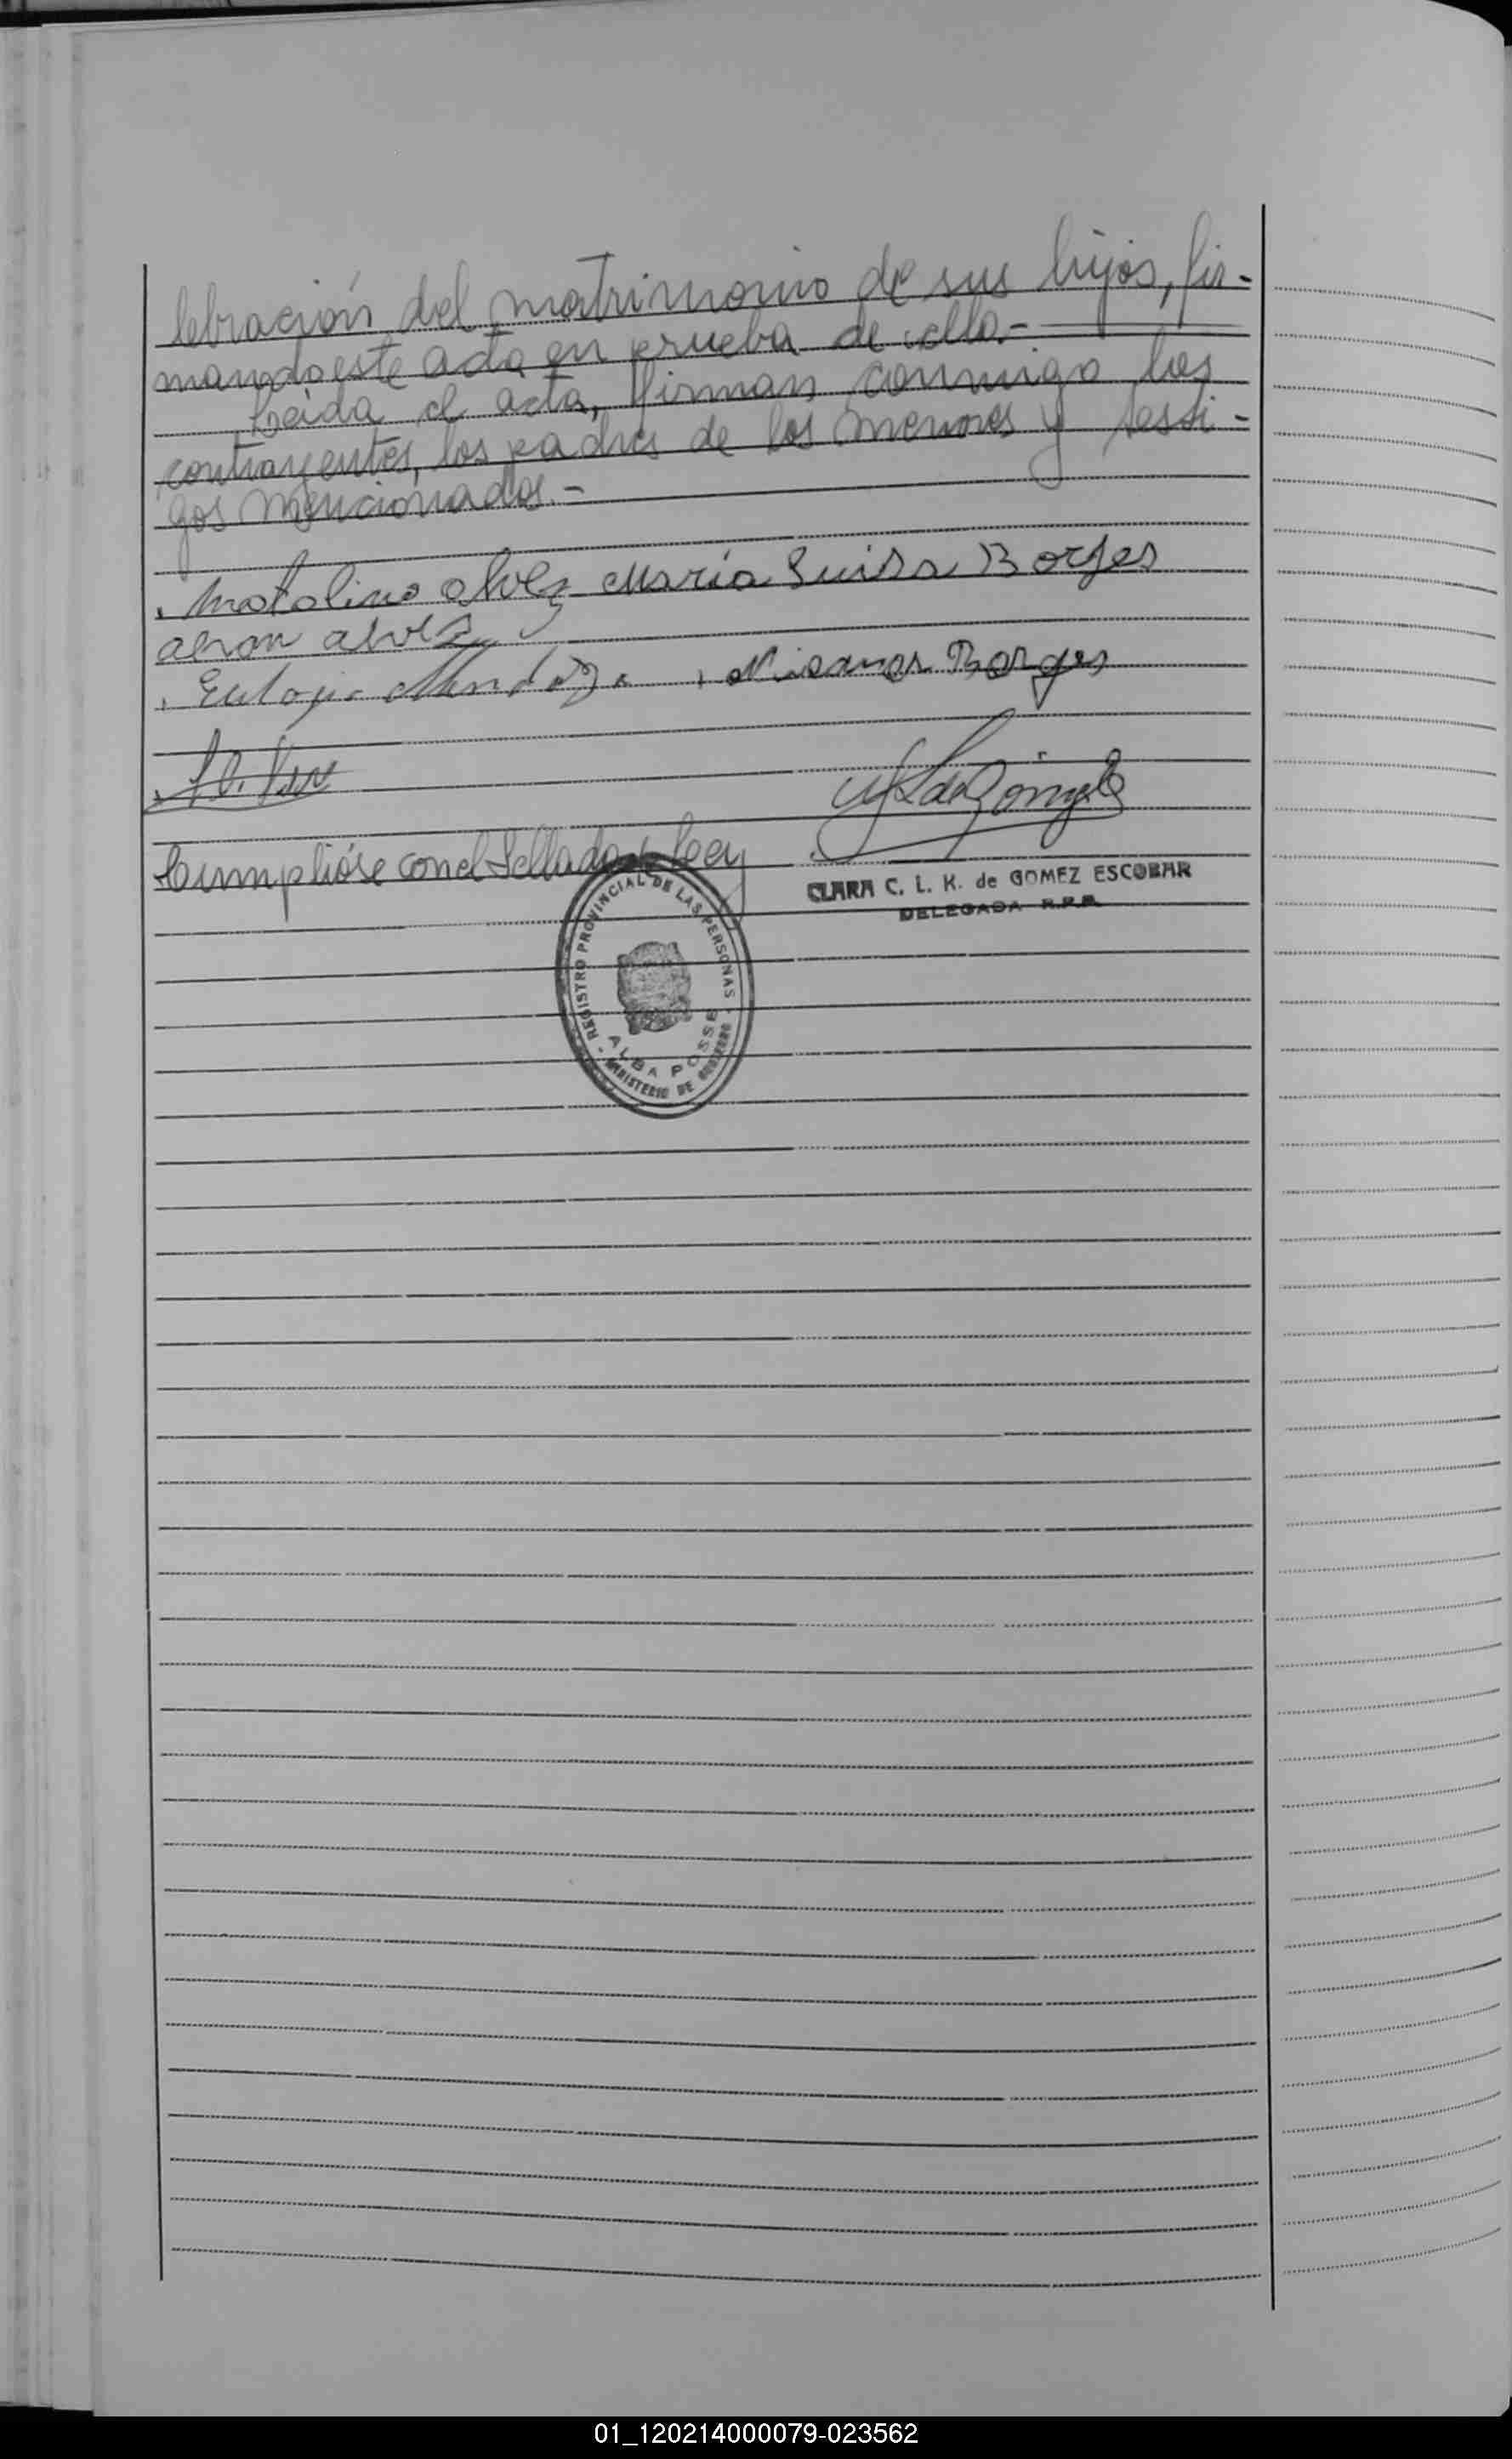 lebración del matrimonio de sus hijos, fir-
mando este acta en prueba de ello.-
Leida el acta, firman conmigo los
contrayentes, los padres de los menores y testi-
gos mencionados.-
Natalino Alvez María Luisa Borges
alvez
Eulogio Mendoza Borges
Cumplióse con el Sellado de Ley
CLARA C. L. K. de GOMEZ ESCOBAR
DELEGADA R.P.P.
REGISTRO PROVINCIAL DE LAS PERSONAS
ALBA POSSE
MINISTERIO DE GOBIERNO
01_120214000079-023562